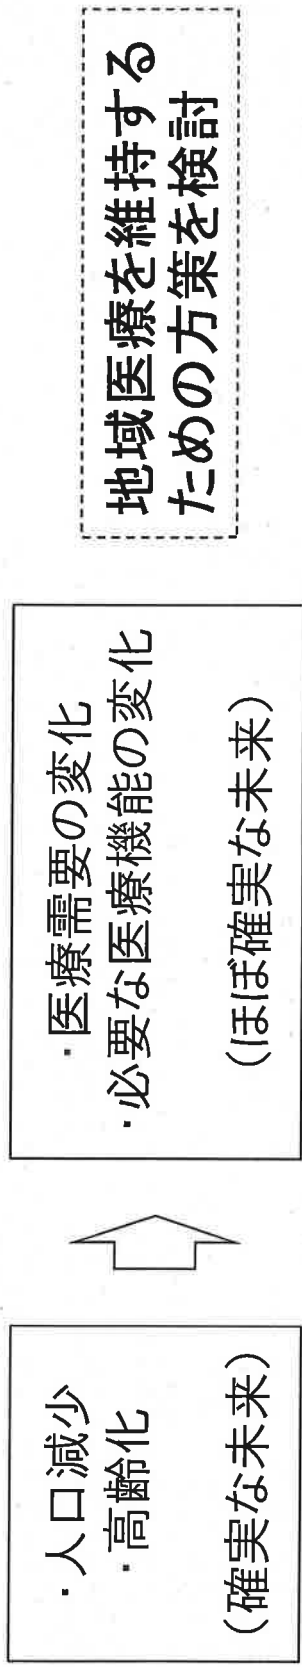 ・人口減少
・高齢化
（確実な未来）
・医療需要の変化
・必要な医療機能の変化
（ほぼ確実な未来）
地域医療を維持する
ための方策を検討